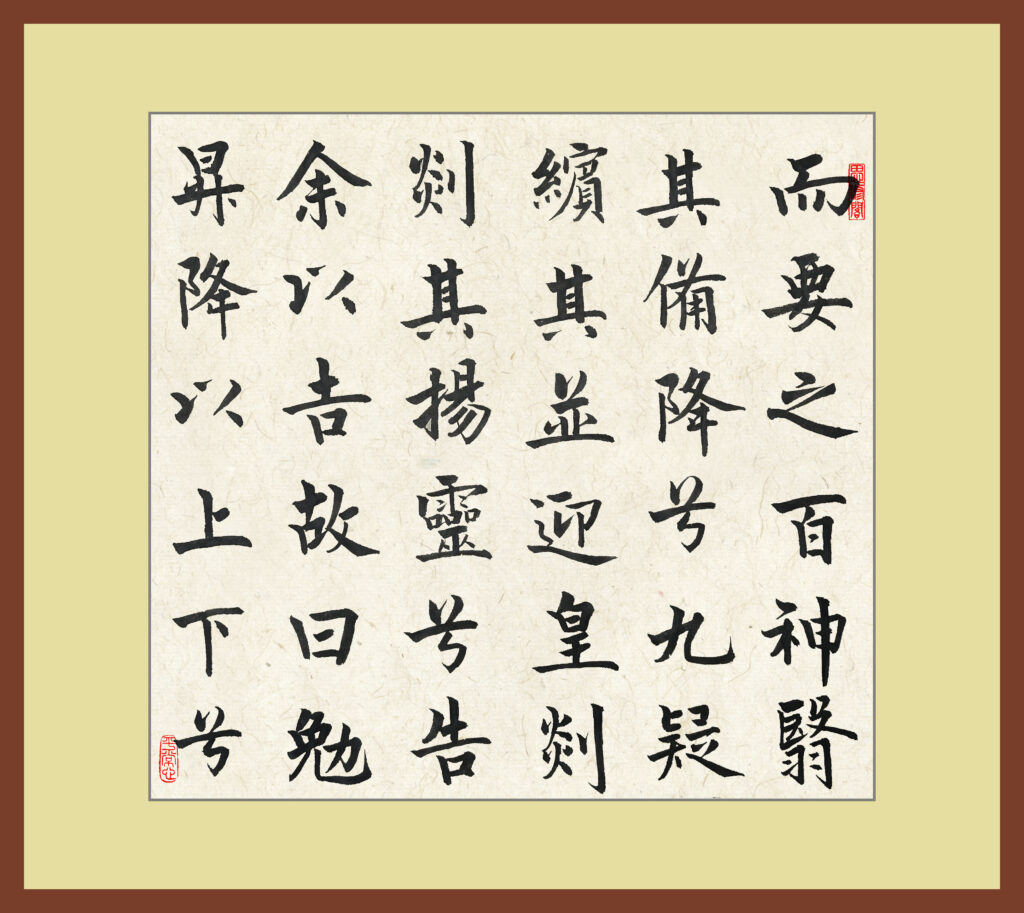 而要之百神翳
其備降兮九疑
繽其並迎皇剡
剡其揚靈兮告
余以吉故曰勉
昇降以上下兮